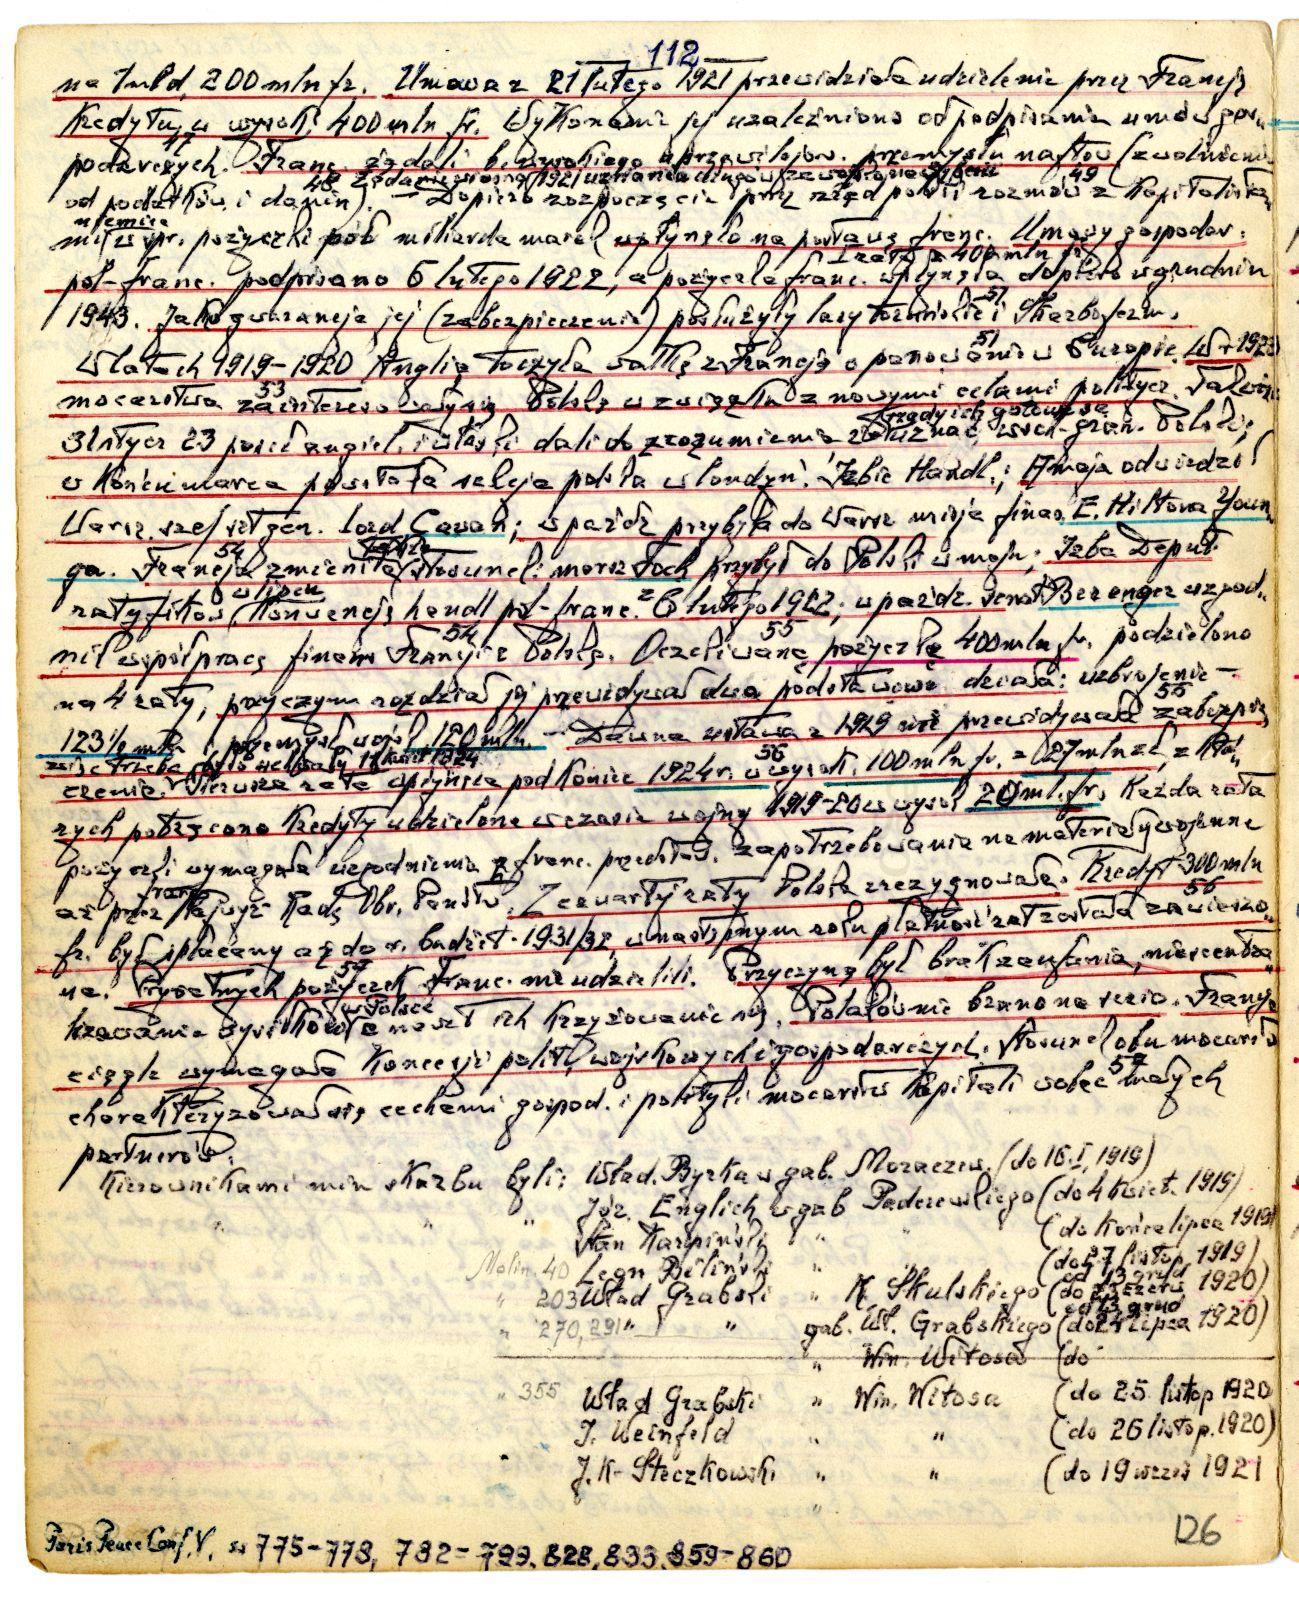 112
na 1 mld, 200 mln fr. Umowa z 21 lutego 1921 przewidziała udzielenie przez Francję
Kredytu, w wysok. 400 mln fr. Wykonanie jej uzależniono od podpisania umów gos-
47
podarczych. Franc. żądali b. wysokiego uprzywilejow. przemysłu naftow (zwolnienia
48 Żądanie wiosną 1921 uznania długów 49
od podatków i danin). — Dopiero rozpoczęcie przez rząd polski rozmów z Kapitalista
niemiec
mi w spr. pożyczki pół miliarda marek wpłynęło na postawę franc. Umowy gospodar.
I rata z 400 mln fr
pol-franc. podpisano 6 lutego 1922, a pożyczka franc. wpłynęła dopiero w grudniu
51
1943. Jako gwarancja jej (zabezpieczenie) posłużyły lasy toruńskie i Skarboferm.
51
W latach 1919-1920 Anglia toczyła walkę z Francją o panowanie w Europie. W r 1923
53
mocarstwa zainteresowały się Polską w związku z nowymi celami polityce.
rządy ich gotowe są
31 stycz 23 poseł angiel. i włoski dali do zrozumienia że uznać wsch. gran. Polski;
w Końcu marca powstała sekcja polska w londyń. Izbie Handl.; 17 maja odwiedził
Warsz. szef szt gen. lord Cavan; w paźdz przybyła do Warsz misja finas. E. Hiltona Youn
54
ga. Francja zmieniła stosunek: marsz Foch przybył do Polski w maju; Izba Deput.
w lipcu
ratyfikow. Konwencję handl pol-franc. z 6 lutego 1922; w paźdz. senat Berenger uzgod-
54 55
nił współpracę finans Francji z Polską. Oczekiwaną pożyczkę 400 mln fr. podzielono
na 4 raty, przyczym rozdział jej przewidywał dwa podstawowe działa: uzbrojenie —
56
123 1/2 mln i przemysł wojsk. 120 mln. — Dawna ustawa z 1919 nie przewidywała zabezpie
więc trzeba było uchwały 11 kwiet 1924 56
czenia. Pierwsza rata wpłynęła pod Koniec 1924 r. w wysok. 100 mln fr. = 27 mln zł, z któ
rych potrącono Kredyty udzielone w czasie wojny 1919-20 w wysok 20 ml. fr. Każda rata
pożyczki wymagała uzgodnienia z franc. przedstaw. zapotrzebowania na materiały wojenne
franc
aż przez Najwyż Radę Obr. Państw. Z czwartej raty Polska zrezygnowała. Kredyt 300 mln
56
fr. był spłacany aż do r. budżet. 1931/32, w następnym roku płatność rat została zawieszo
57
na. Prywatnych pożyczek Franc. nie udzielili. Przyczyną był brak zaufania,
w Polsce
wysiłków a nawet ich krzyżowanie się. Połałównie brano na serio. Francja
ciągle wymagała Koncesji polit., wojskowych i gospodarczych. Stosunek obu mocarstw
57
charakteryzował się cechami gospod. i polityki mocarstw Kapitali wobec małych
partnerów.
Kierownikami min skarbu byli: Wład. Byrka w gab. Moraczew. (do 16.I, 1919)
" " " Józ. Englich w gab Paderewskiego (do 4 kwiet. 1919)
Stan Karpiński " " (do końca lipca 1919)
Molin. 40 Leon Biliński " (do 27 listop 1919)
od 13 grud
" 203 Wład Grabski " K Skulskiego (do czerw 1920)
od 23 grud
" 270, 291 " " gab. Wł. Grabskiego (do 24 lipca 1920)
" Win. Witosa (do
" 355 Wład Grabski " Win. Witosa (do 25 listop 1920
J. Weinfeld " " (do 26 listop. 1920)
" J. K. Steczkowski " " (do 19 wrześ 1921
"
Paris Peace Conf. V. ss 775-778, 782-799, 828, 833, 859-860
126